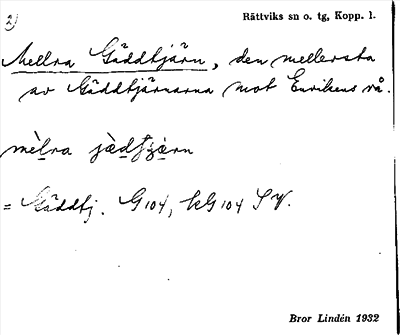 2) Rättviks sn o. tg, Kopp. l.
Mellra Gäddtjärn, den mellersta
av Gäddtjärnarna mot Envikens rå.
mèlra jàdtjàrn
= Gäddtj. G 104, kG 104 SV.
Bror Lindén 1932